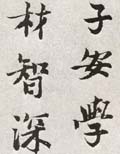 子安學
材智深